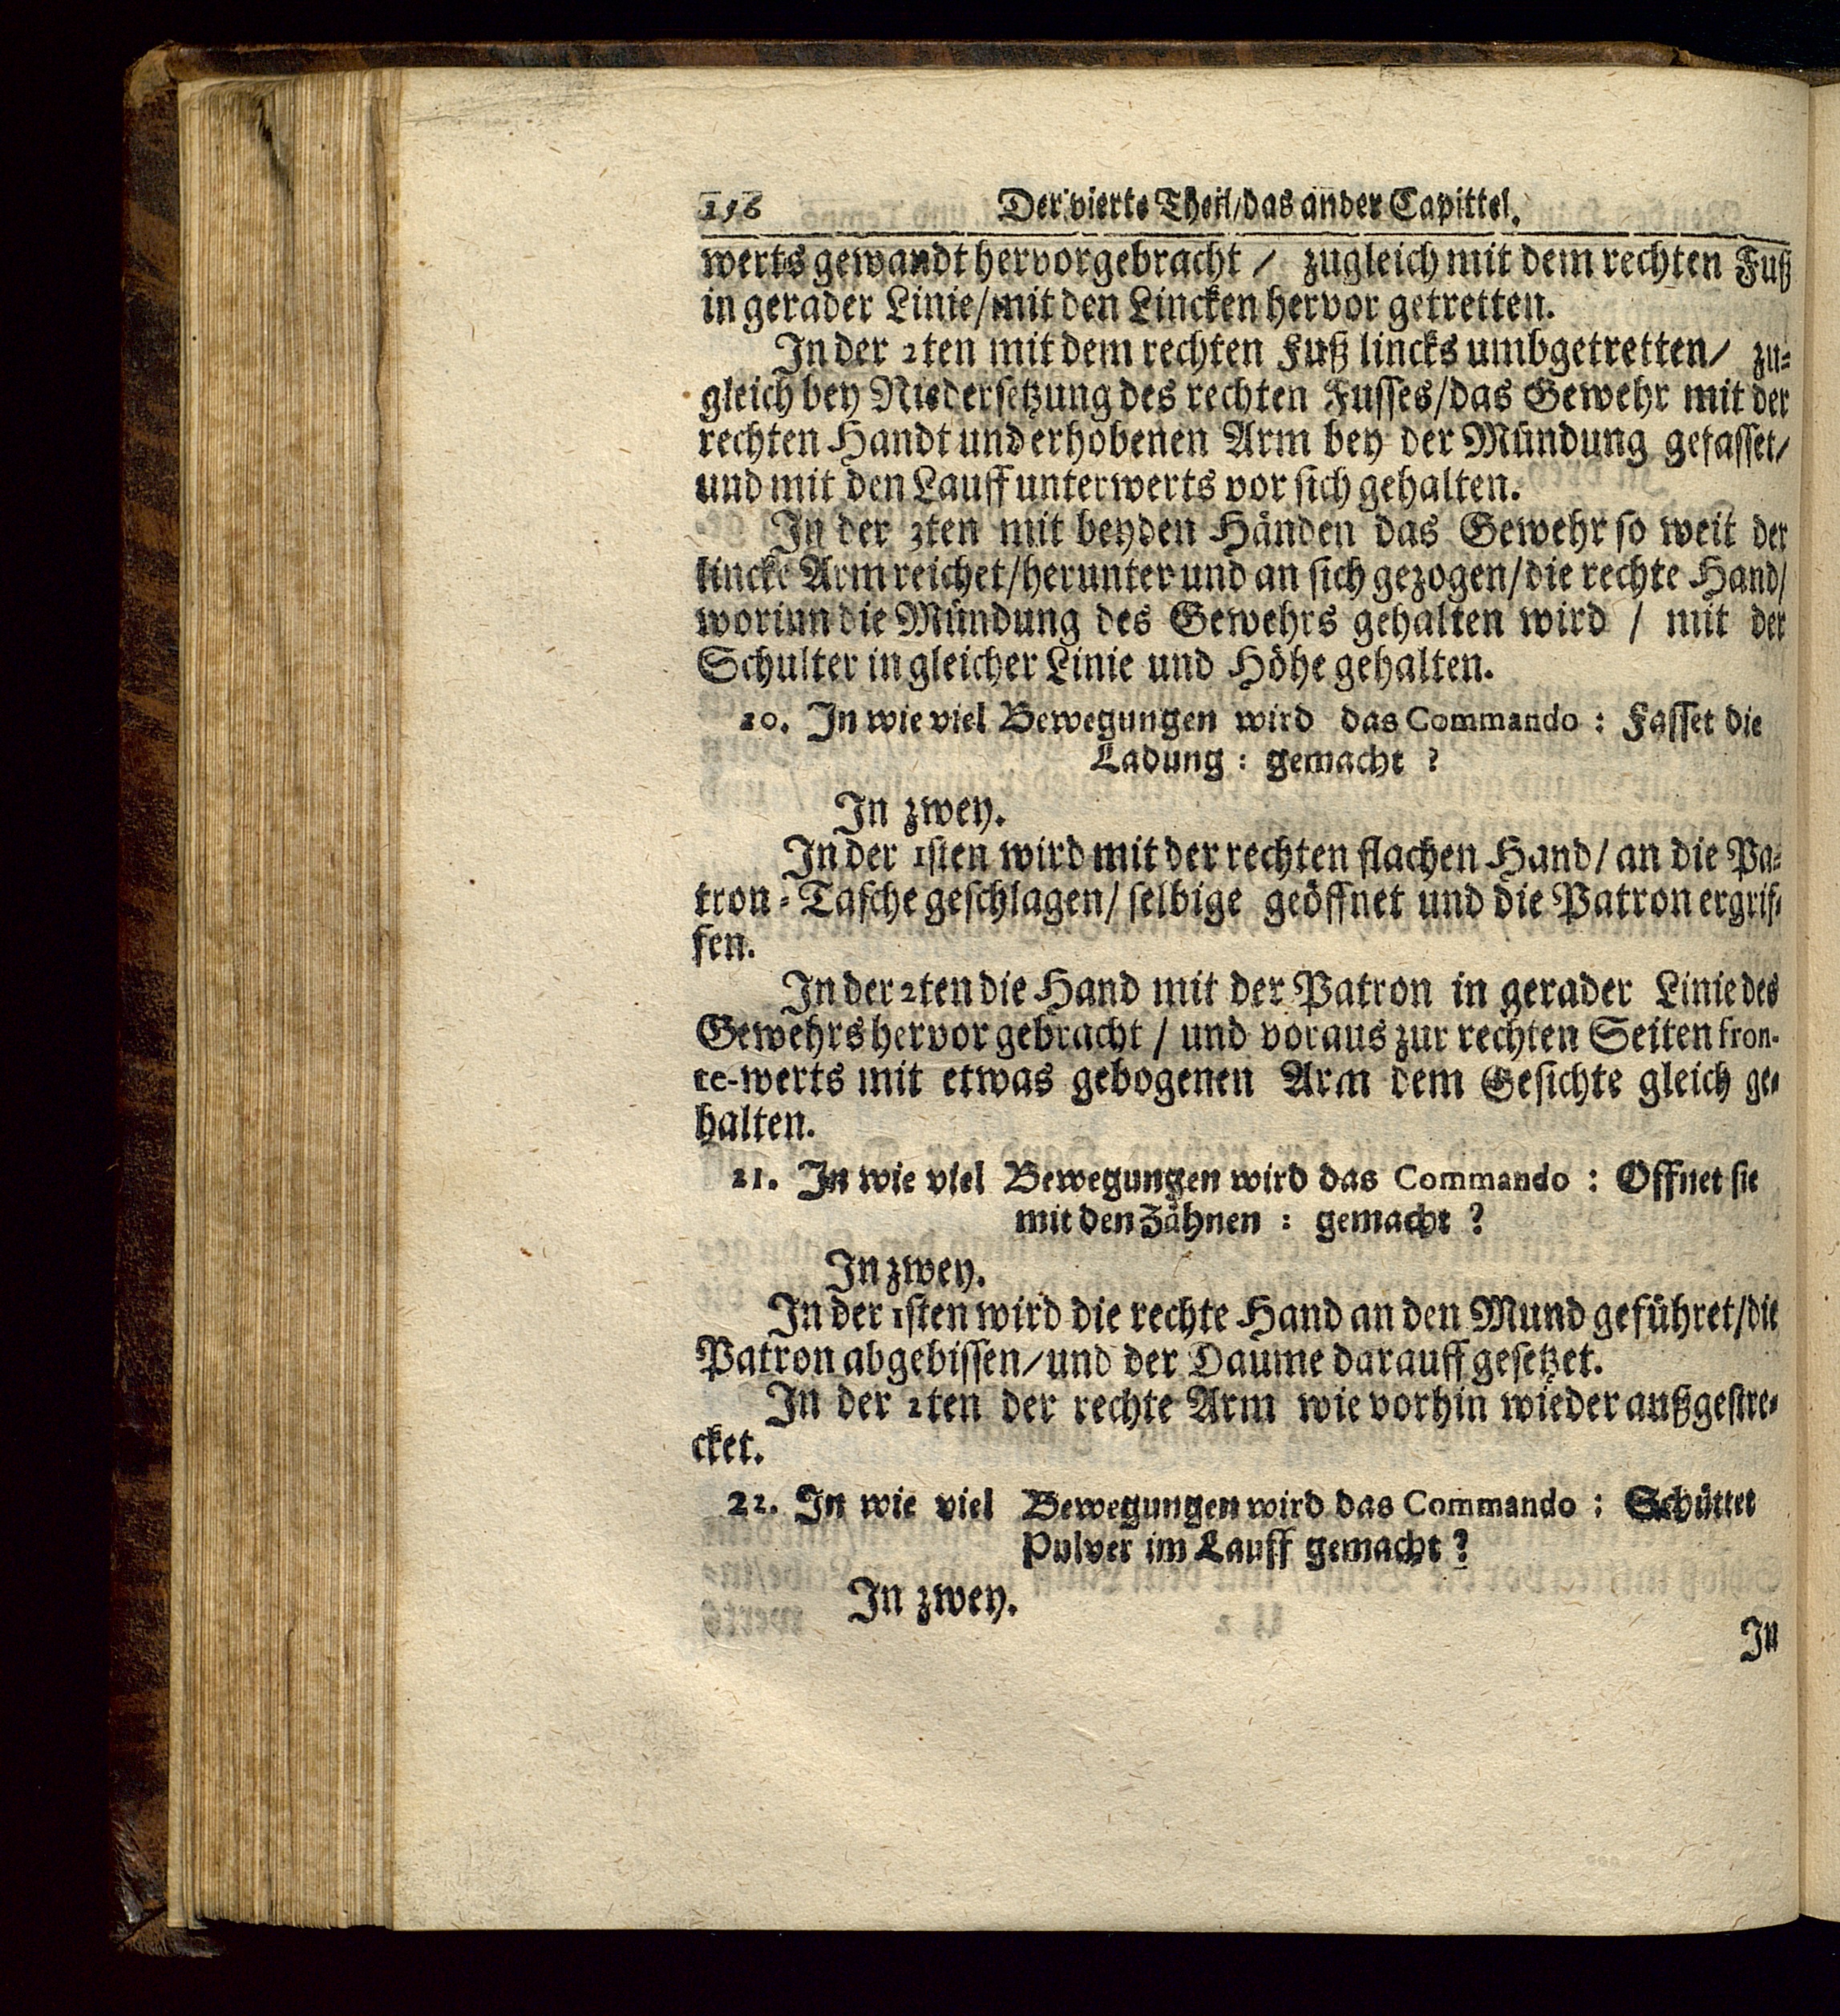 156 Der vierte Theil/das ander Capittel.
werts gewandt hervorgebracht / zugleich mit dem rechten Fuß
in gerader Linie/mit den Lincken hervor getretten.
In der 2ten mit dem rechten Fuß lincks umbgetretten/ zu-
gleich bey Niedersetzung des rechten Fusses/das Gewehr mit der
rechten Handt und erhobenen Arm bey der Mündung gefasset/
und mit den Lauff unterwerts vor sich gehalten.
In der 3ten mit beyden Händen das Gewehr so weit der
lincke Arm reichet/herunter und an sich gezogen/die rechte Hand/
worinn die Mündung des Gewehrs gehalten wird / mit der
Schulter in gleicher Linie und Höhe gehalten.
20. In wie viel Bewegungen wird das Commando : Fasset die
Ladung : gemacht ?
In zwey.
In der 1sten wird mit der rechten flachen Hand/ an die Pa-
tron-Tasche geschlagen/ selbige geöffnet und die Patron ergrif-
fen.
In der 2ten die Hand mit der Patron in gerader Linie des
Gewehrs hervor gebracht / und voraus zur rechten Seiten fron-
te-werts mit etwas gebogenen Arm dem Gesichte gleich ge-
halten.
21. In wie viel Bewegungen wird das Commando : Offnet sie
mit den Zähnen : gemacht ?
In zwey.
In der 1sten wird die rechte Hand an den Mund geführet/die
Patron abgebissen/und der Daume darauff gesetzet.
In der 2ten der rechte Arm wie vorhin wieder außgestre-
cket.
22. In wie viel Bewegungen wird das Commando : Schüttet
Pulver im Lauff gemacht ?
In zwey.
In